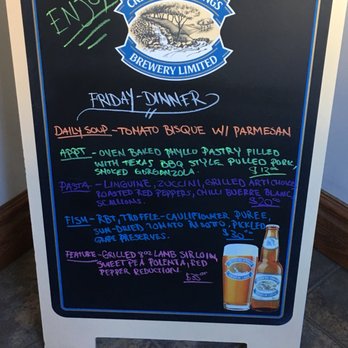 ENJOY
SPRINGS
BREWERY LIMITED
FRIDAY-DINNER
DAILY SOUP - TOMATO BISQUE W/ PARMESAN
APPT - OVEN BAKED PHYLLO PASTRY FILLED
WITH TEXAS BBQ STYLE PULLED PORK,
SMOKED GORGONZOLA.
PASTA - LINGUINE, ZUCCINI, GRILLED ARTICHOKE
ROASTED RED PEPPERS, CHILI BUERRE BLANC
SCALLIONS.
FISH - RBT, TRUFFLE-CAULIFLOWER PUREE,
SUN-DRIED TOMATO RISOTTO, PICKLED
GRAPE PRESERVES.
FEATURE - GRILLED 8oz LAMB SIRLOIN,
SWEET PEA POLENTA, RED
PEPPER REDUCTION